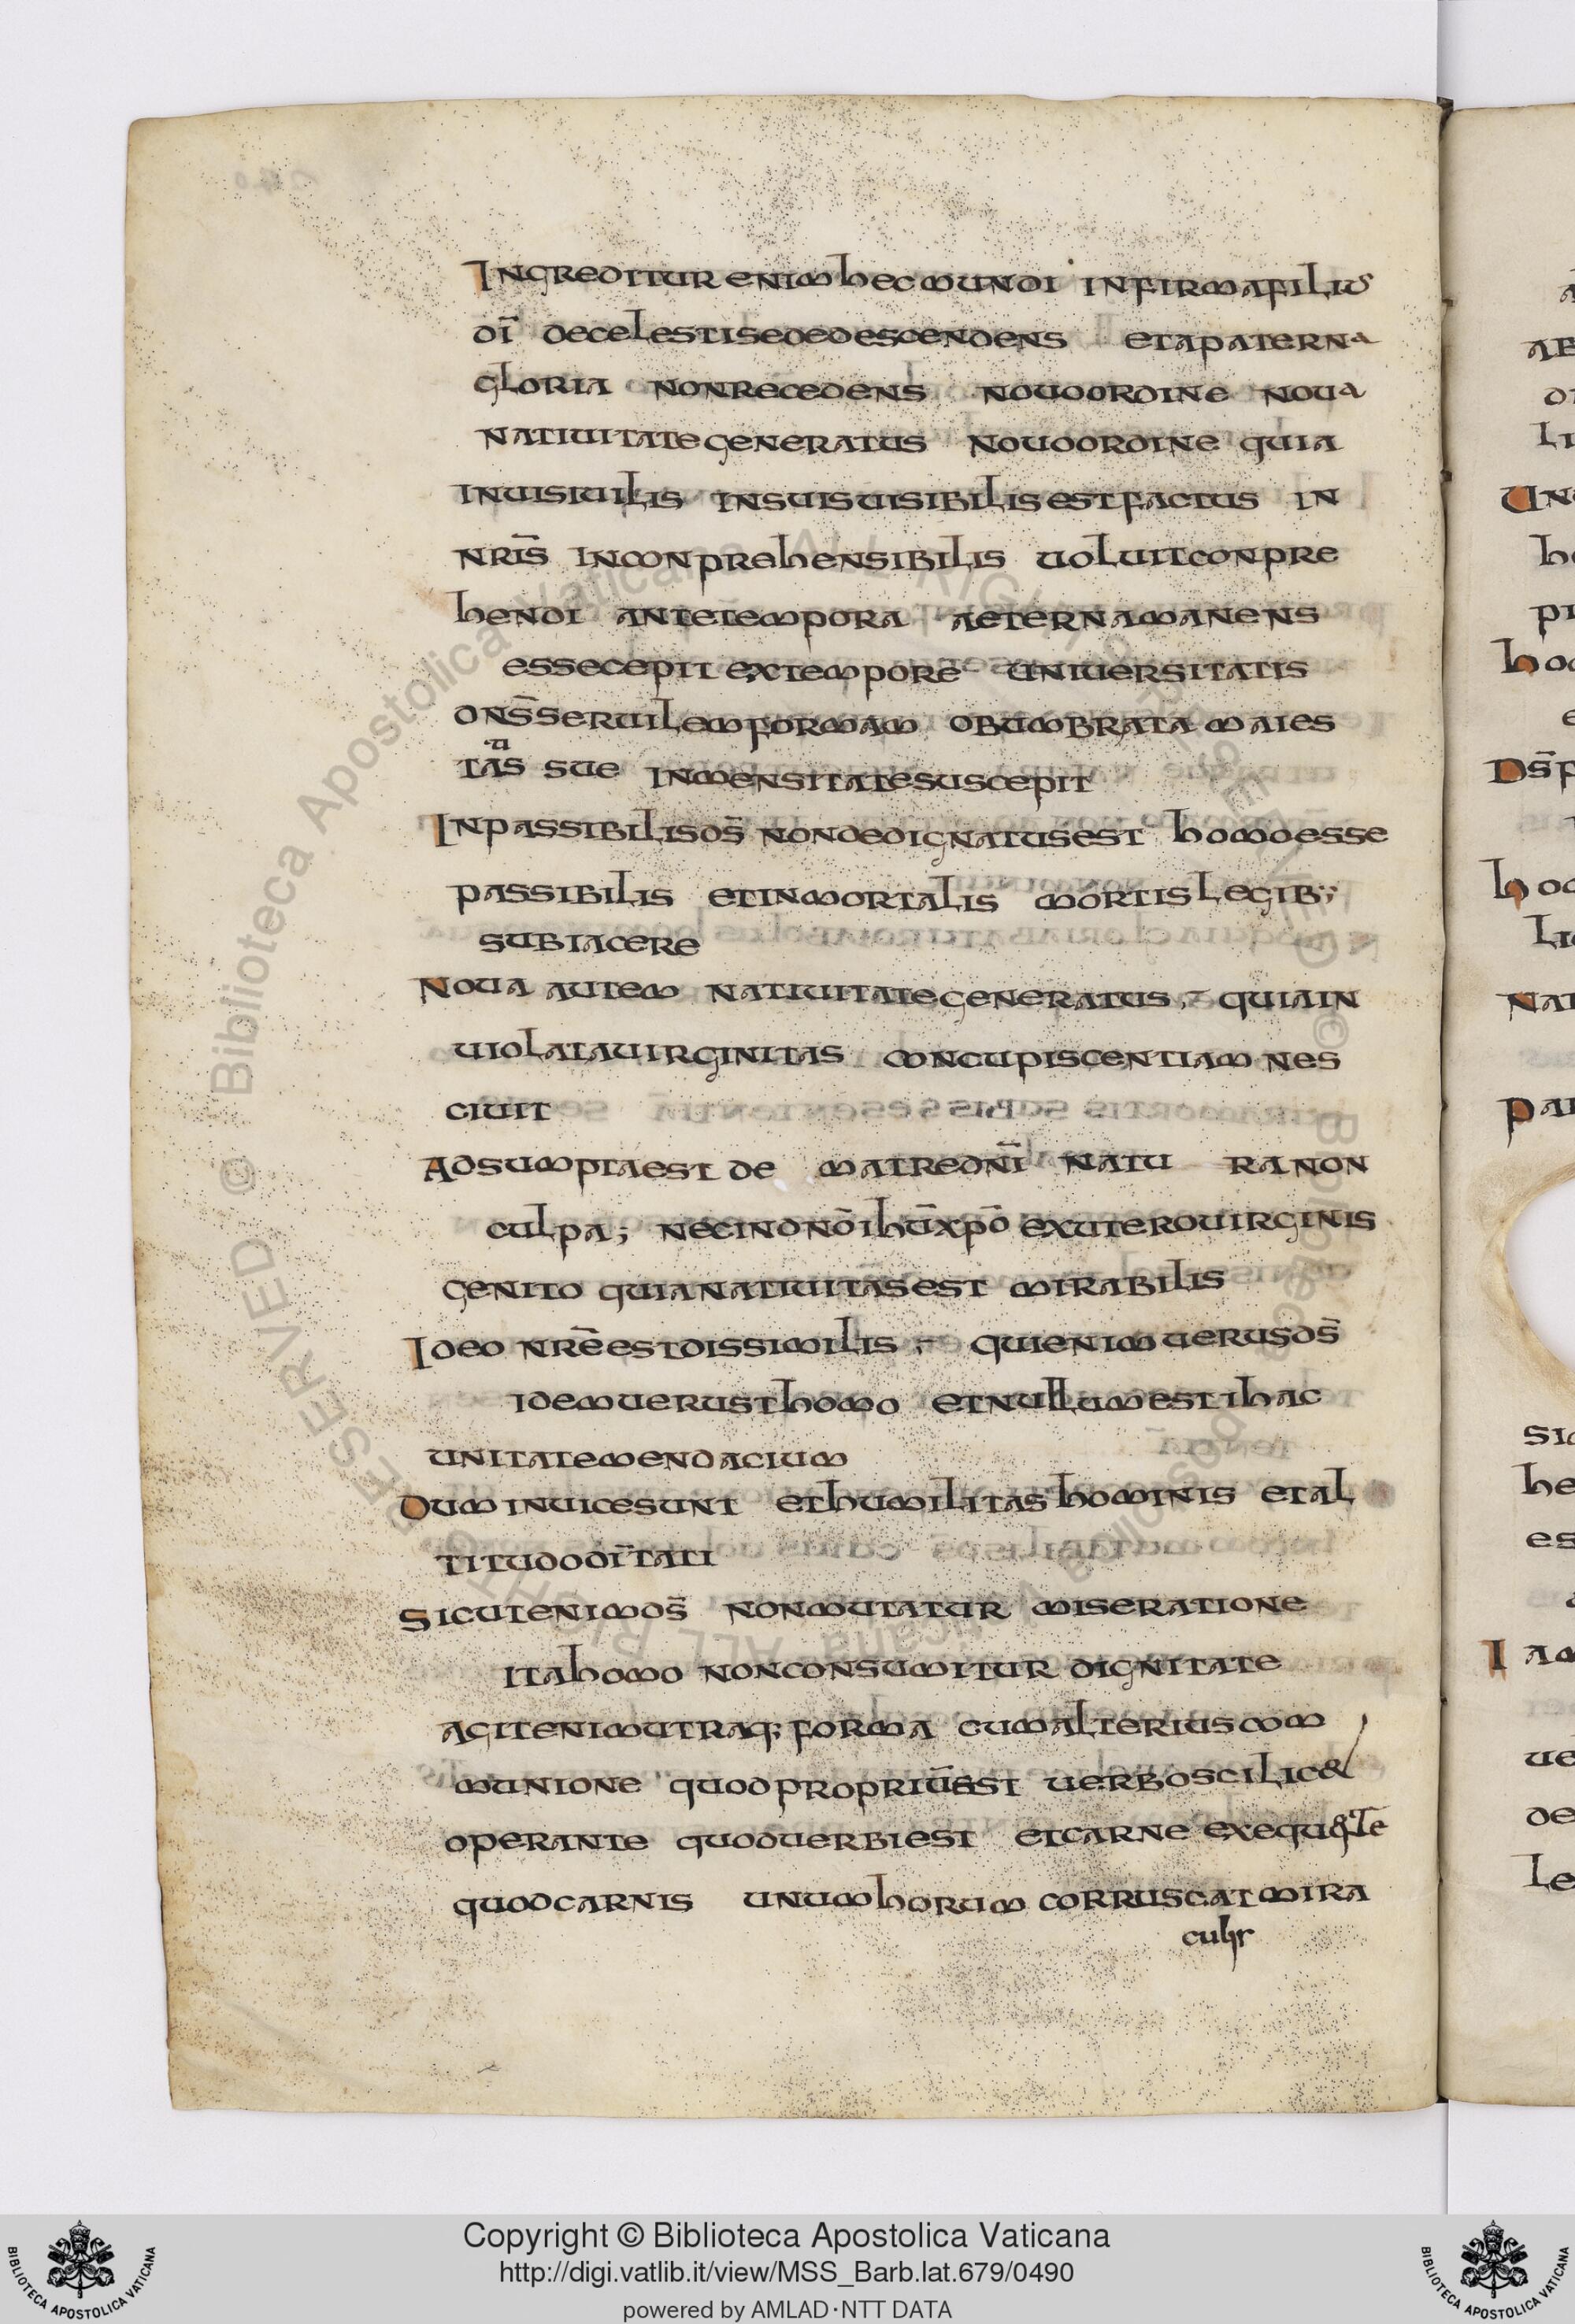 Ingreditur enim hec mundi infirma filius
dī de celesti sede descendens et a paterna
gloria non recedens novo ordine nova
nativitate generatus novo ordine quia
invisivilis in suis visibilis est factus in
nrīs inconprehensibilis voluit conpre
hendi ante tempora aeterna manens
esse cepit ex tempore universitatis
dns̄ servilem formam obumbrata maies
tas̄ sue inmensitate suscepit
Inpassibilis ds̄ non dedignatus est homo esse
passibilis et inmortalis mortis legib;
subiacere
Nova autem nativitate generatus, quia in
violata virginitas concupiscentiam nes
civit
Adsumpta est de matre dnī natu ra non
culpa; nec in dnō ihū xpō ex utero virginis
genito quia nativitas est mirabilis
Ideo nrē est dissimilis, qui enim verus ds̄
idem verus t homo et nullum est i hac
unitate mendacium
Dum invice sunt et humilitas hominis et al
titudo dī tati
Sicut enim ds̄ non mutatur miseratione
ita homo non consumitur dignitate
agit enim utraq; forma cum alterius com
munione quod propriū est verbo scilic&
operante quod verbi est et carne exequ&te
quod carnis unum horum corruscat mira
culir
Copyright © Biblioteca Apostolica Vaticana
http://digi.vatlib.it/view/MSS_Barb.lat.679/0490
powered by AMLAD·NTT DATA
BIBLIOTECA APOSTOLICA VATICANA
BIBLIOTECA APOSTOLICA VATICANA